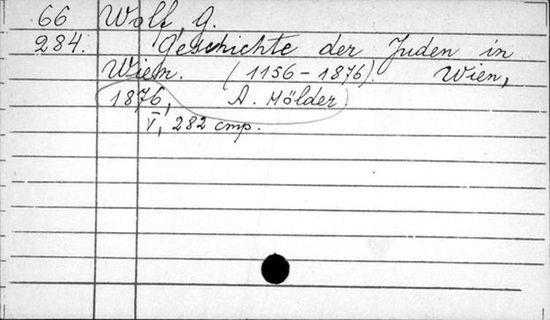 66 Wolf G.
284. Geschichte der Juden in
Wien. (1156-1876). Wien,
1876, A. Hölder
V, 282 стр.